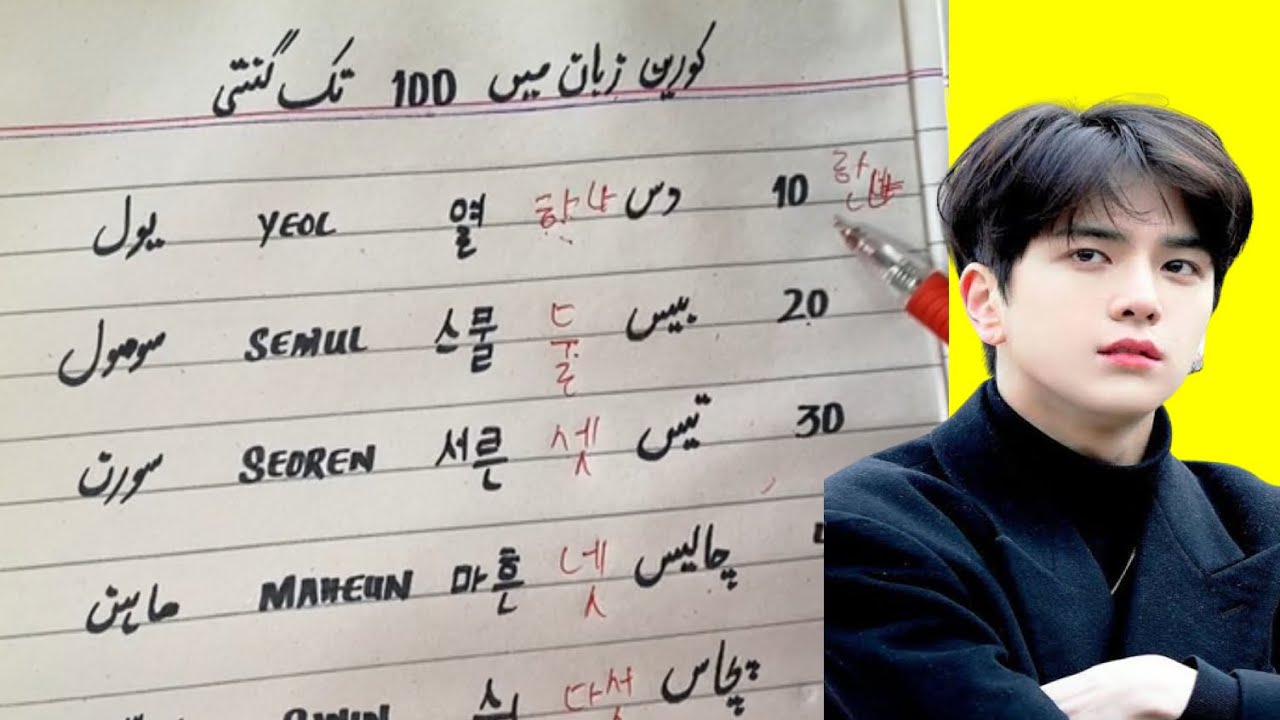 کورین زبان میں 100 تک گنتی
10 دس 하나 열 YEOL یول
20 بیس 둘 스물 SEMUL سومول
30 تیس 셋 서른 SEOREN سورن
چالیس 넷 마흔 MAHEUN ماہن
پچاس 다섯